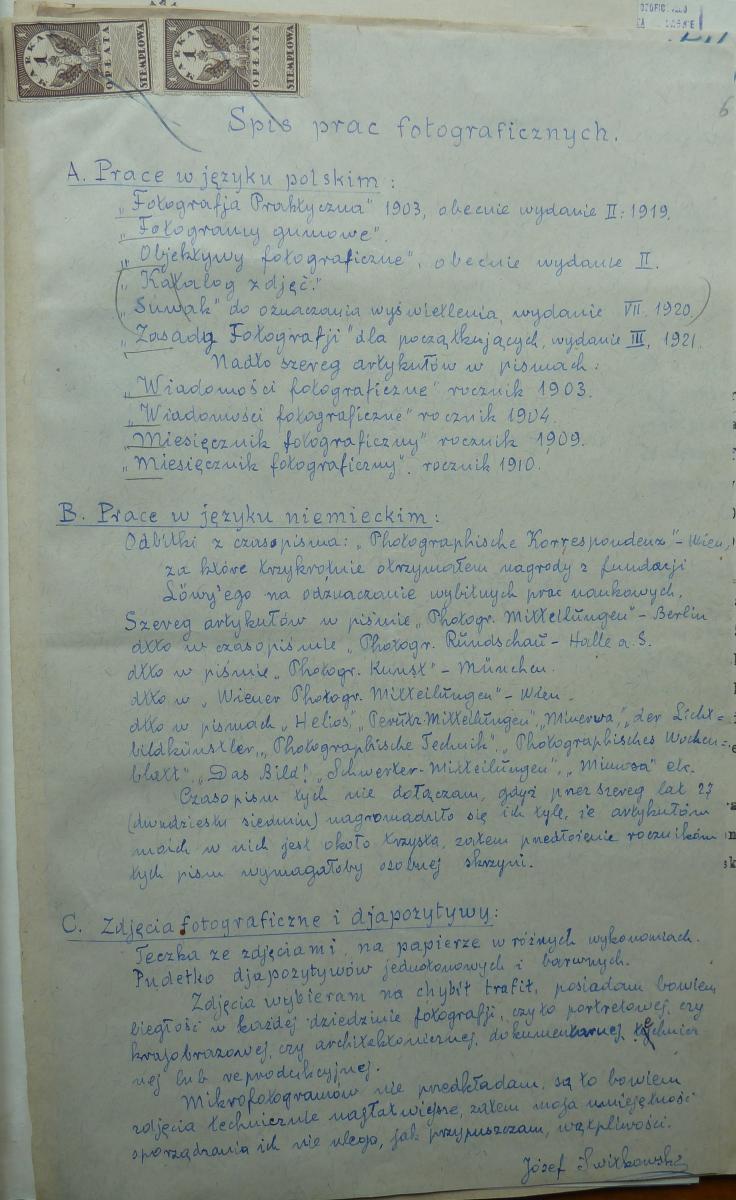 MARKA 1 OPŁATA STEMPLOWA
MARKA 1 OPŁATA STEMPLOWA
6
Spis prac fotograficznych.
A. Prace w języku polskim:
„Fotografja Praktyczna" 1903, obecnie wydanie II: 1919.
„Fotogramy gumowe".
„Objektywy fotograficzne", obecnie wydanie II.
„Katalog zdjęć."
„Suwak" do oznaczania wyświetlenia, wydanie VII. 1920.
„Zasady Fotografji" dla początkujących, wydanie III, 1921.
Nadto szereg artykułów w pismach:
„Wiadomości fotograficzne" rocznik 1903.
„Wiadomości fotograficzne" rocznik 1904.
„Miesięcznik fotograficzny" rocznik 1909.
„Miesięcznik fotograficzny". rocznik 1910.
B. Prace w języku niemieckim:
Odbitki z czasopisma: „Photographische Korrespondenz" – Wien,
za które trzykrotnie otrzymałem nagrody z fundacji
Löwy'ego na odznaczanie wybitnych prac naukowych.
Szereg artykułów w piśmie „Photogr. Mitteilungen" – Berlin
dtto w czasopiśmie „Photogr. Rundschau – Halle a. S.
dtto w piśmie „Photogr. Kunst" – München.
dtto w „Wiener Photogr. Mitteilungen" – Wien.
dtto w pismach „Helios," „Perutz Mitteilungen", „Minerva," „der Licht=
bildkünstler," „Photographische Technik", „Photographisches Wochen=
blatt", „Das Bild", „Schwerter-Mitteilungen", „Mimosa" etc.
Czasopism tych nie dołączam, gdyż przez szereg lat 27
(dwudziestu siedmiu) nagromadziło się ich tyle, że artykułów
moich w nich jest około trzysta, zatem przedłożenie roczników
tych pism wymagałoby osobnej skrzyni.
C. Zdjęcia fotograficzne i djapozytywy:
Teczka ze zdjęciami, na papierze w różnych wykonaniach.
Pudełko djapozytywów jednotonowych i barwnych.
Zdjęcia wybieram na chybił trafił, posiadam bowiem
biegłość w każdej dziedzinie fotografji, czy to portretowej, czy
krajobrazowej, czy architektonicznej, dokumentarnej, technicz
nej lub reprodukcyjnej.
Mikrofotogramów nie przedkładam, są to bowiem
zdjęcia technicznie najłatwiejsze, zatem moja umiejętność
sporządzania ich nie ulega, jak przypuszczam, wątpliwości.
Józef Świtkowski